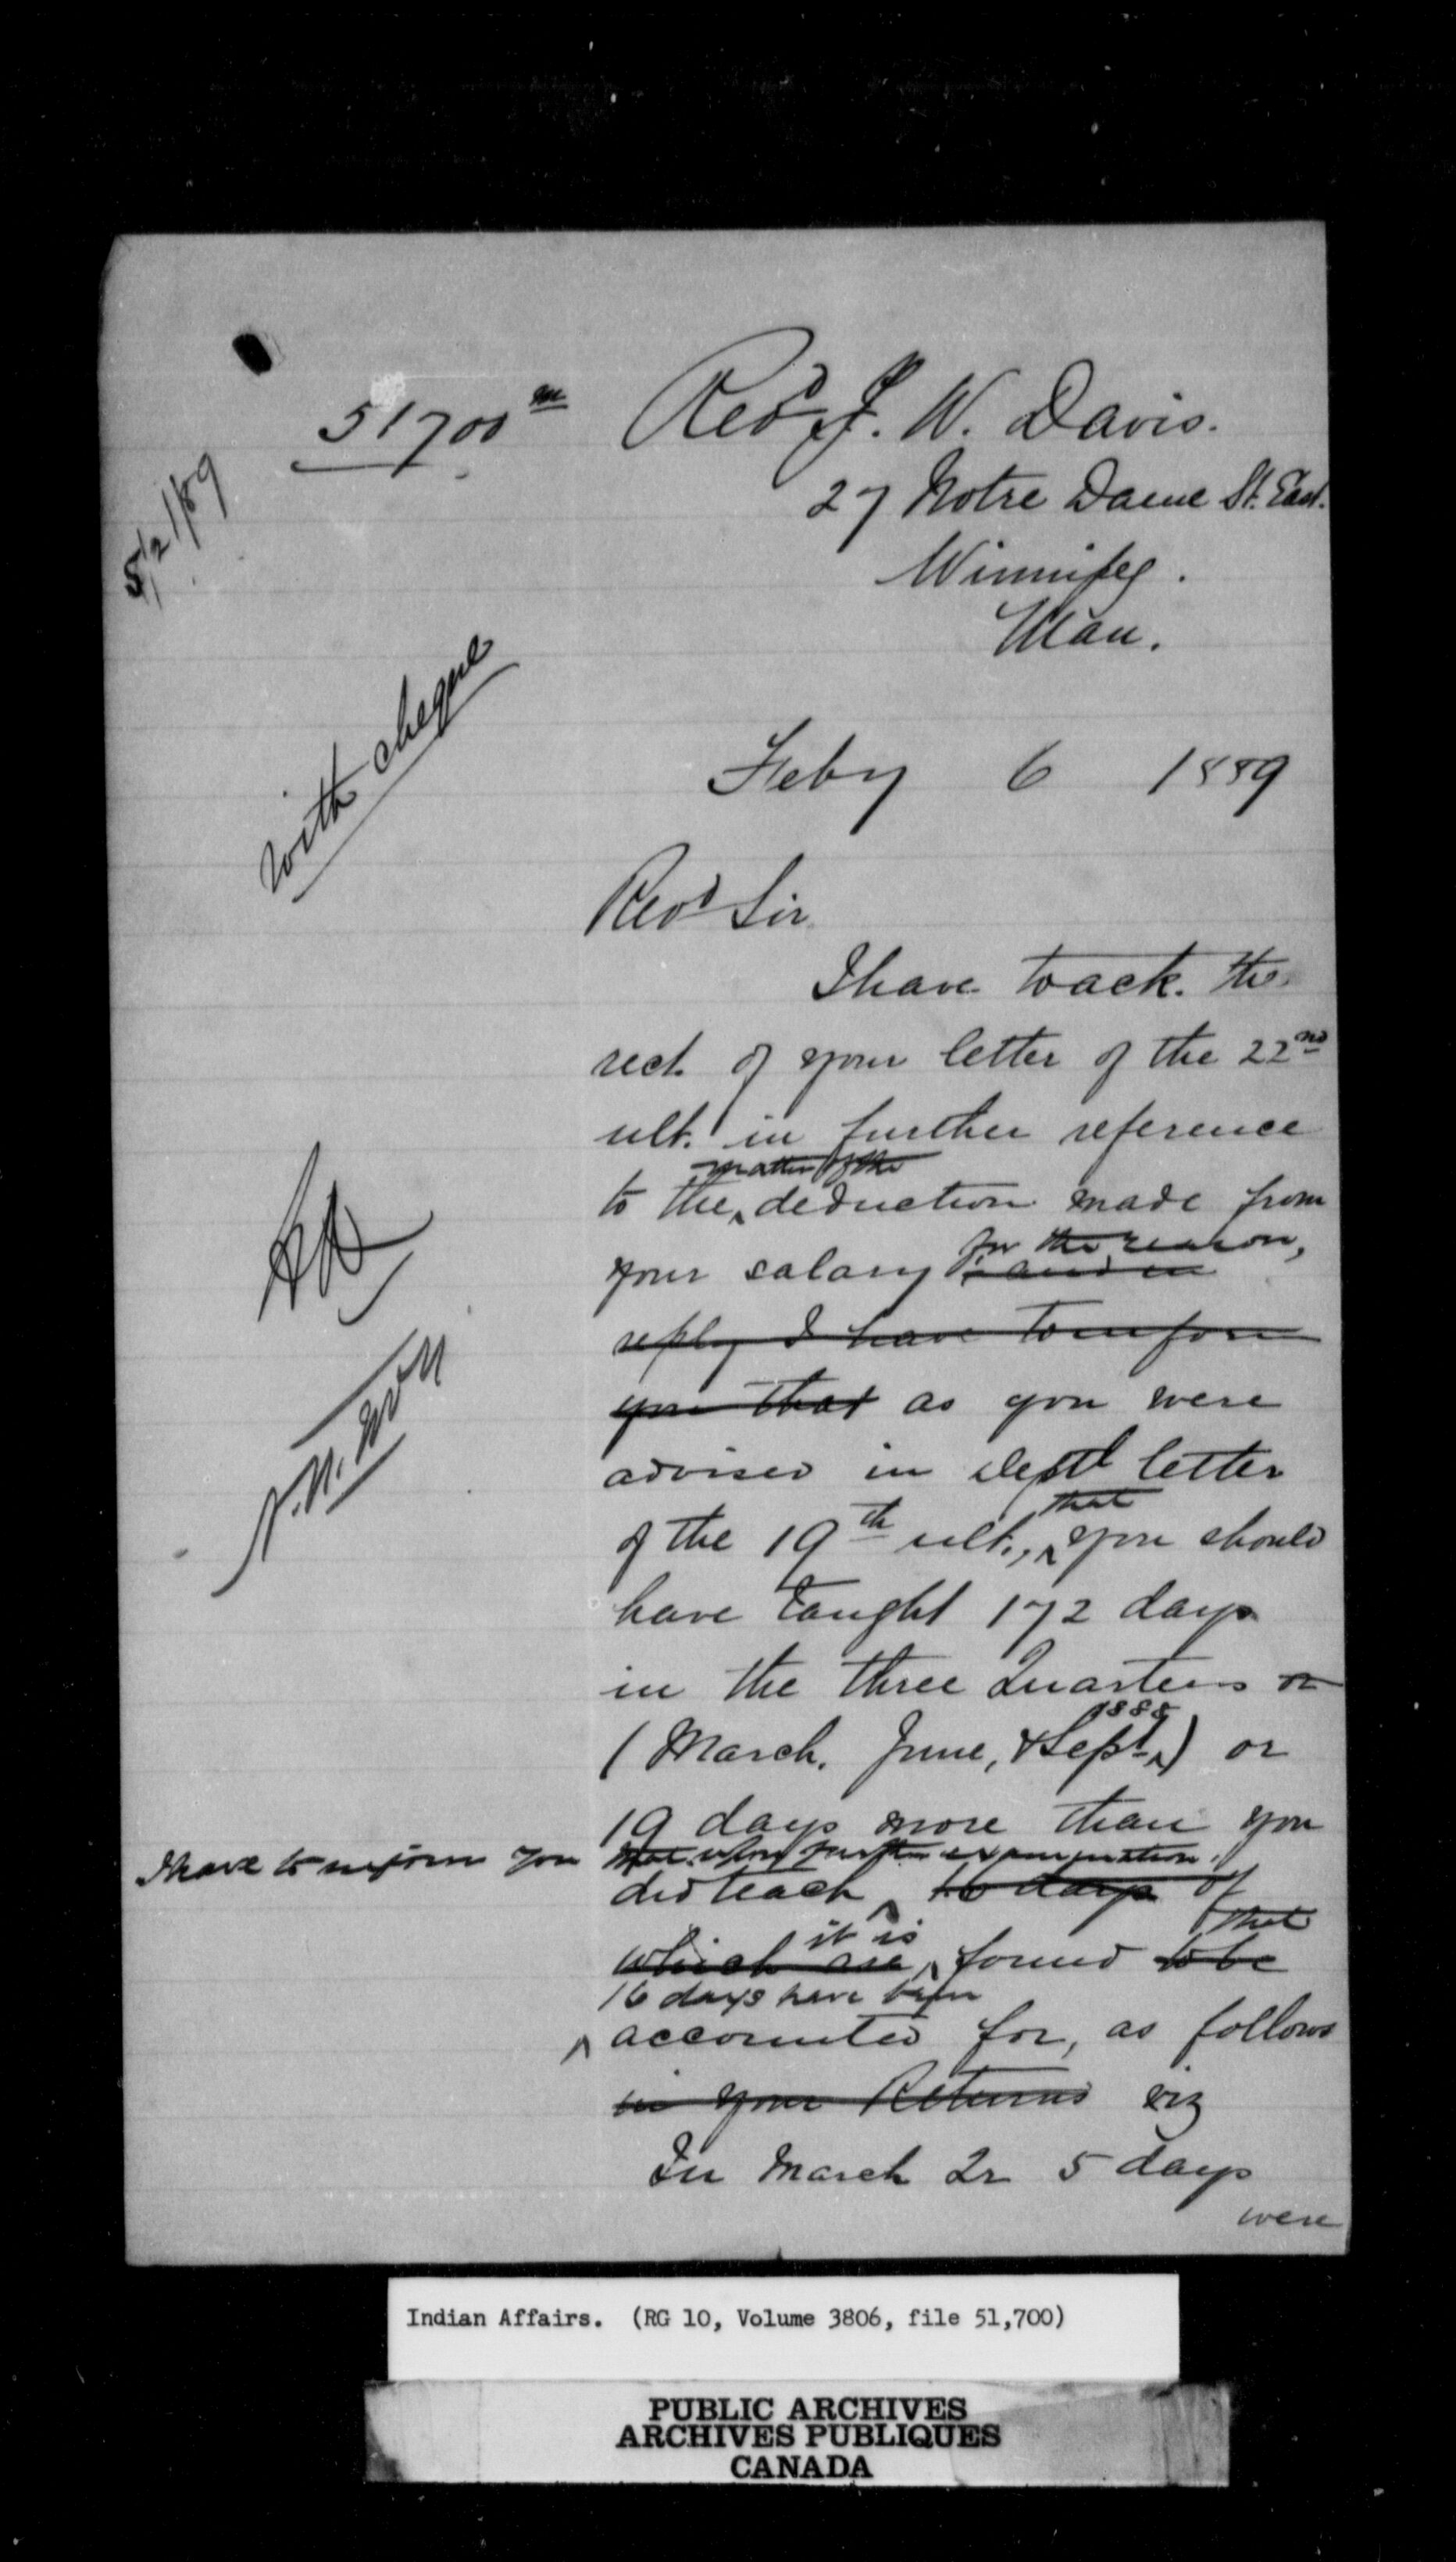 51700 m
Revd J. W. Davis.
27 Notre Dame St. East.
Winnipeg.
Man.
5/2/89
with cheque
Feby 6 1889
Revd Sir
I have to ack. the
rect. of your letter of the 22nd
ult. in further reference
matter of the
to the deduction made from
for the reason,
your salary, and in
reply I have to inform
you that as you were
advised in Deptl letter
that
of the 19th ult., you should
have taught 172 days
in the three Quarters or
1888
(March, June, & Sept.) or
19 days more than you
I have to inform you that upon further examination
did teach 16 days of
it is that
which are found to be
16 days have been
accounted for, as follows
in your Returns viz
In March Qr 5 days
were
Indian Affairs. (RG 10, Volume 3806, file 51,700)
PUBLIC ARCHIVES
ARCHIVES PUBLIQUES
CANADA